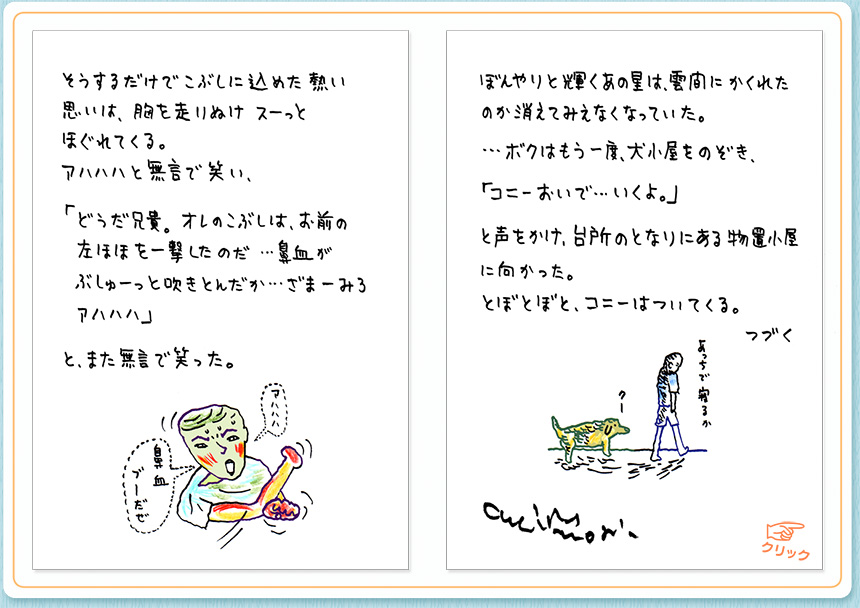 そうするだけでこぶしに込めた熱い
思いは、胸を走りぬけ スーっと
ほぐれてくる。
アハハハと無言で笑い、
「どうだ兄貴。オレのこぶしは、お前の
左ほほを一撃したのだ…鼻血が
ぶしゅーっと吹きとんだか…ざまーみろ
アハハハ」
と、また無言で笑った。
アハハハ
鼻血
ブーだぜ
ぼんやりと輝くあの星は、雲間にかくれた
のか消えてみえなくなっていた。
…ボクはもう一度、犬小屋をのぞき、
「コニーおいで…いくよ。」
と声をかけ、台所のとなりにある物置小屋
に向かった。
とぼとぼと、コニーはついてくる。
つづく
あっちで寝るか
クー
クリック